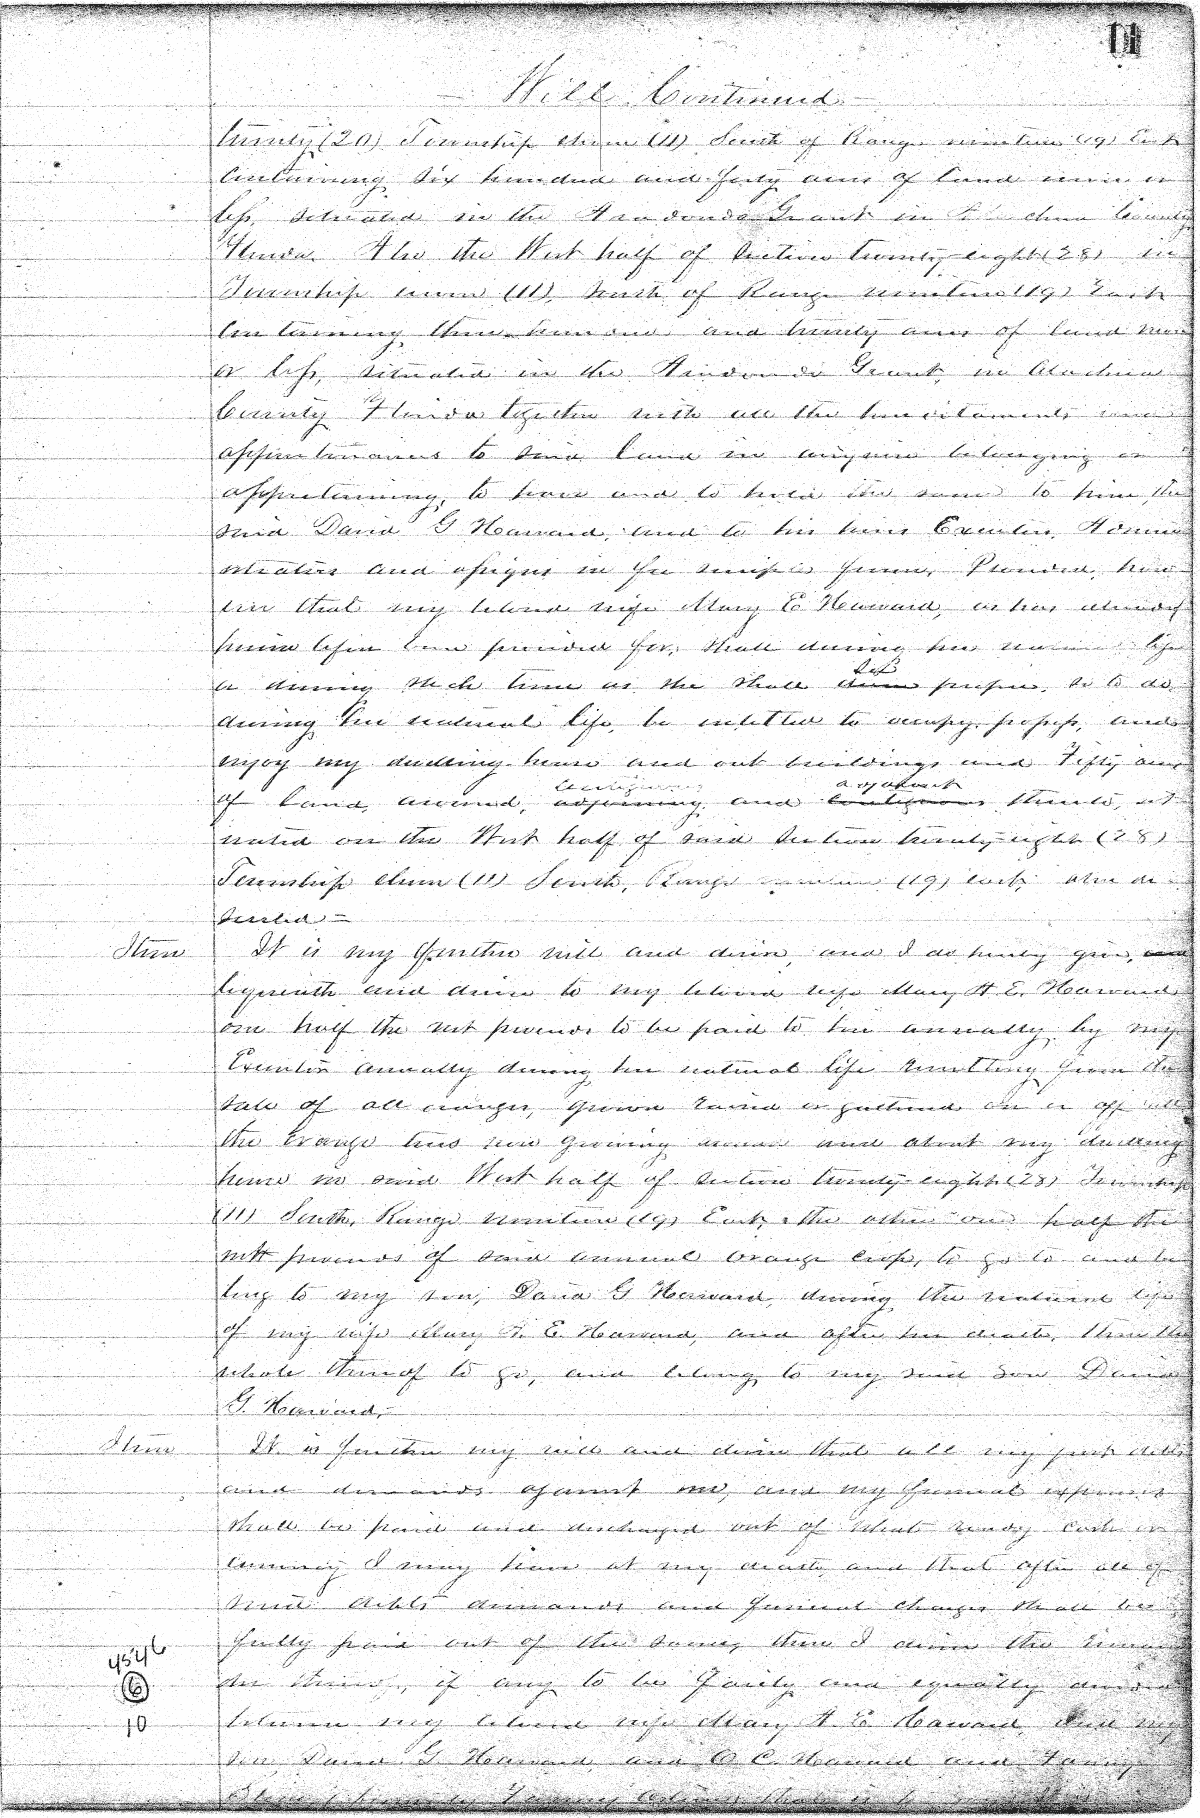 Will Continued
twenty (20) Township eleven (11) South of Range nineteen (19) East
Containing six hundred and forty acres of land more or
less, situated in the Arredondo Grant in Alachua County
Florida. Also the West half of Section twenty-eight (28) in
Township eleven (11), South of Range nineteen (19) East
Containing three hundred and twenty acres of land more
or less, situated in the Arredondo Grant, in Alachua
County Florida together with all the hereditaments and
appurtenances to said land in anywise belonging or
appertaining, to have and to hold the same to him, the
said David G Haward, and to his heirs Executors, Admini
strators and assigns in fee simple forever, Provided, how
ever that my beloved wife Mary E Haward, as has already
herein before been provided for, shall during her natural life
or during such time as she shall see prefer, so to do
during her natural life, be entitled to occupy, possess, and
enjoy my dwelling-house and out buildings and Fifty acres
of land, around, contiguous and adjacent thereto, sit
uated on the West half of said Section twenty-eight (28)
Township eleven (11) South, Range nineteen (19) East, above de
scribed –
Item It is my further will and desire, and I do hereby give, and
bequeath and devise to my beloved wife Mary A. E. Haward
one half the net proceeds to be paid to her annually by my
Executor annually during her natural life resulting from the
sale of all oranges, grown raised or gathered on or off all
the orange trees now growing around and about my dwelling
house in said West half of Section twenty-eight (28) Township
(11) South, Range nineteen (19) East, the other one half the
nett proceeds of said annual orange crop, to go to and be
long to my son, David G Haward, during the natural life
of my wife Mary A. E. Haward, and after her death, then the
whole thereof to go, and belong to my said son David
G. Haward,–
Item It is further my will and desire that all my just debts
and demands against me, and my funeral expenses
shall be paid and discharged out of what ready cash or
currency I may have at my death, and that after all of
said debts demands and funeral charges shall be
fully paid out of the same, then I desire the remain
der thereof, if any to be fairly and equally divided
between my beloved wife Mary A E Haward, and my
son, David G. Haward, and O C. Haward and Fanny
4546
6
10